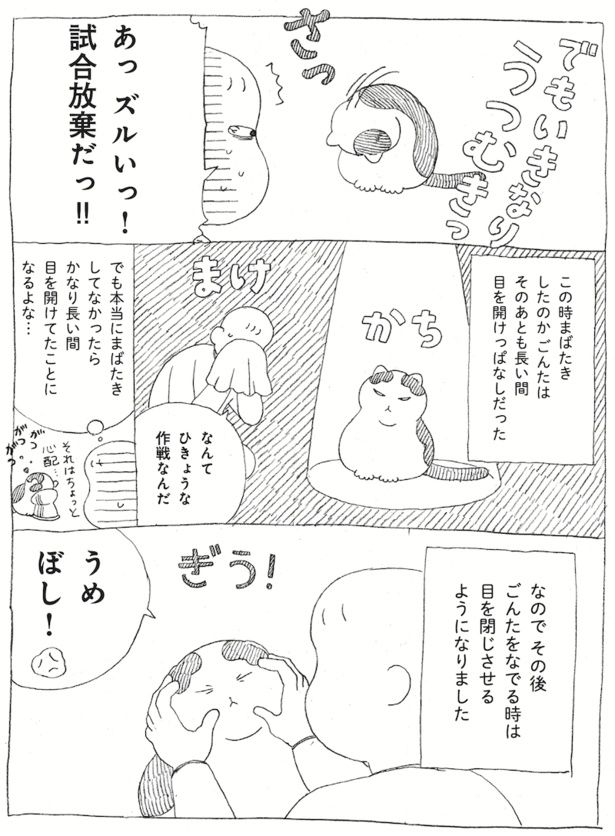 でもいきなり
うつむきっ
さっ
あっ ズルいっ!
試合放棄だっ!!
この時まばたき
したのか ごんたは
そのあとも長い間
目を開けっぱなしだった
かち
まけ
なんて
ひきょうな
作戦なんだ
でも本当にまばたき
してなかったら
かなり長い間
目を開けてたことに
なるよな…
それはちょっと
心配…
がつ
がつ
がつ
なので その後
ごんたをなでる時は
目を閉じさせる
ようになりました
ぎう!
うめ
ぼし!